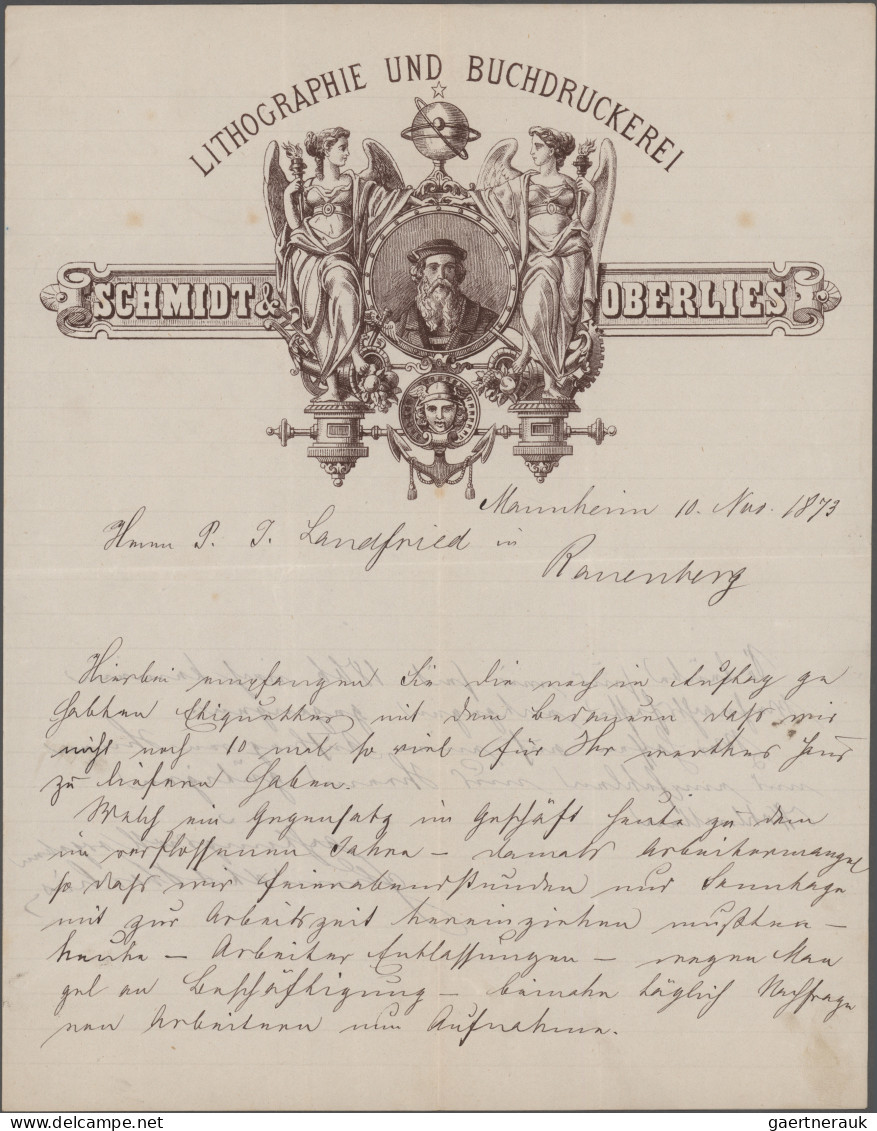 LITHOGRAPHIE UND BUCHDRUCKEREI
SCHMIDT & OBERLIES
Mannheim 10. Nov. 1873
Herrn P. J. Landfried in
Rauenberg
Hierbei empfangen Sie die noch in Auftrag ge
habten Etiquetten mit dem Bedauern daß wir
nicht noch 10 mal so viel für Ihr werthes Haus
zu liefern haben.
Welch ein Gegensatz im Geschäft heute zu dem
im verflossenen Jahre – damals Arbeitermangel
so daß wir Feierabendstunden und Sonntage
mit zur Arbeitszeit hereinziehen mußten –
heute – Arbeiter Entlassungen – wegen Man
gel an Beschäftigung – beinahe täglich Nachfrage
von Arbeitern um Aufnahme.
gaertnerauk